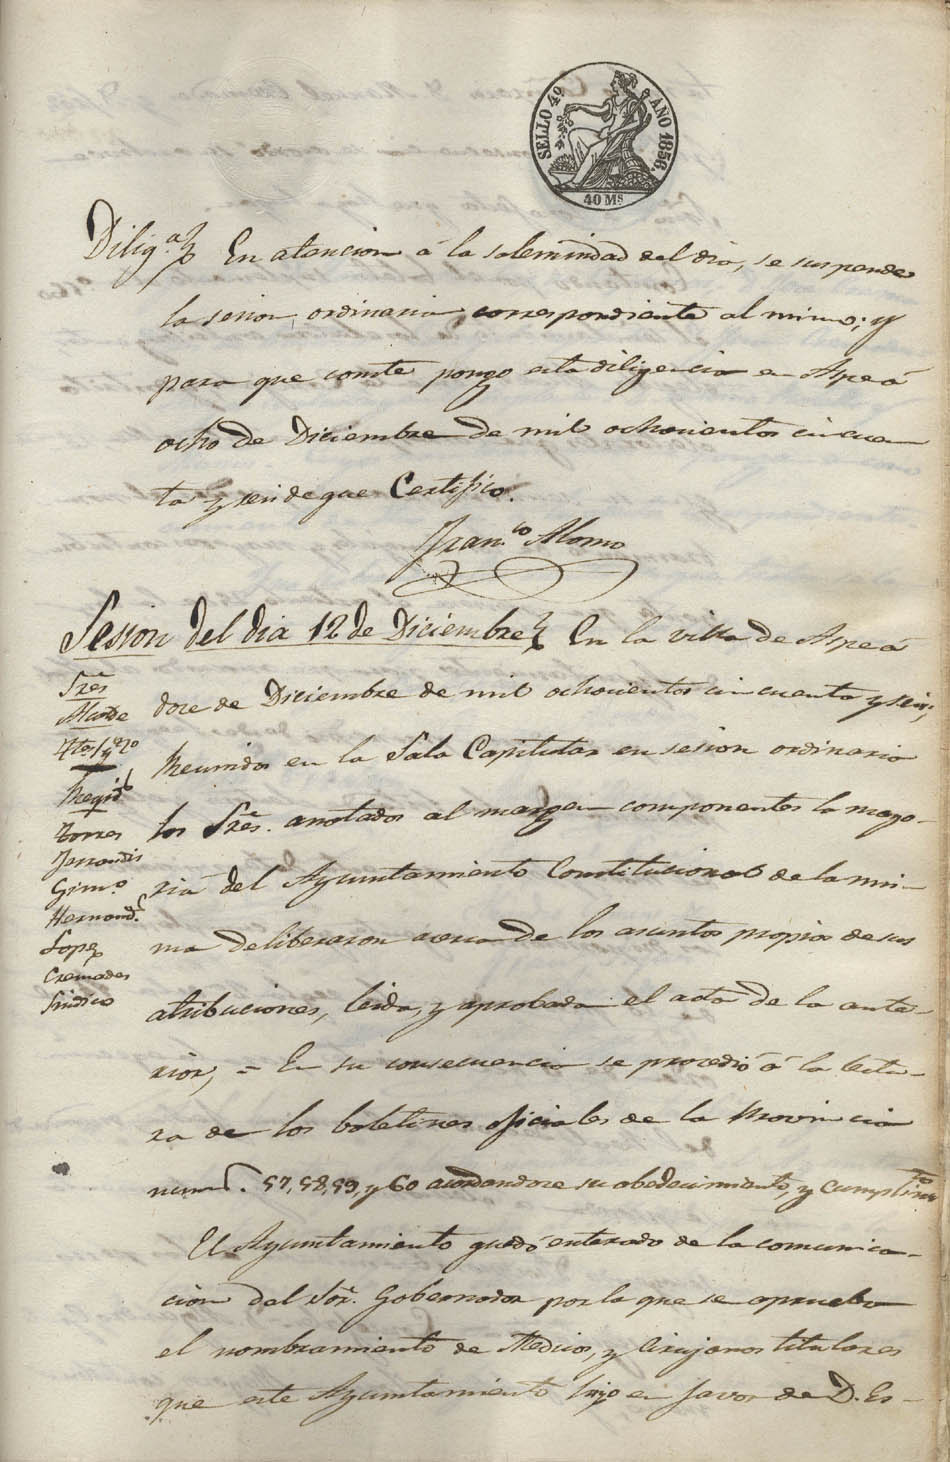 SELLO 4º AÑO 1856.
40 Ms
Diligª En atencion á la solemnidad del dia, se suspende
la sesion, ordinaria correspondiente al mismo; y
para que conste pongo esta diligencia en Aspe á
ocho de Diciembre de mil ochocientos cincuen
ta y seis de que Certifico.
Franco Alonso
Sesion del dia 12 de Diciembre En la villa de Aspe á
doce de Diciembre de mil ochocientos cincuenta y seis;
Reunidos en la Sala Capitular en sesion ordinaria
los Sres. anotados al margen componentes la mayo-
ria del Ayuntamiento Constitucional de la mis-
ma deliberaron acerca de los asuntos propios de sus
atribuciones, leida, y aprobada el acta de la ante-
rior, = En su consecuencia se procedió á la lectu-
ra de los boletines oficiales de la Provincia
nums. 57, 58, 59, y 60 acordandose su obedecimiento, y cumplimto
El Ayuntamiento quedó enterado de la comunica-
cion del Sor. Gobernador por la que se aprueba
el nombramiento de Medicos, y Cirujanos titulares
que este Ayuntamiento hizo en favor de D. Es-
Sres
Alcalde
Regids
Torres
Ferrandis
Gimo
Hernands
Lopez
Cremades
Sindico